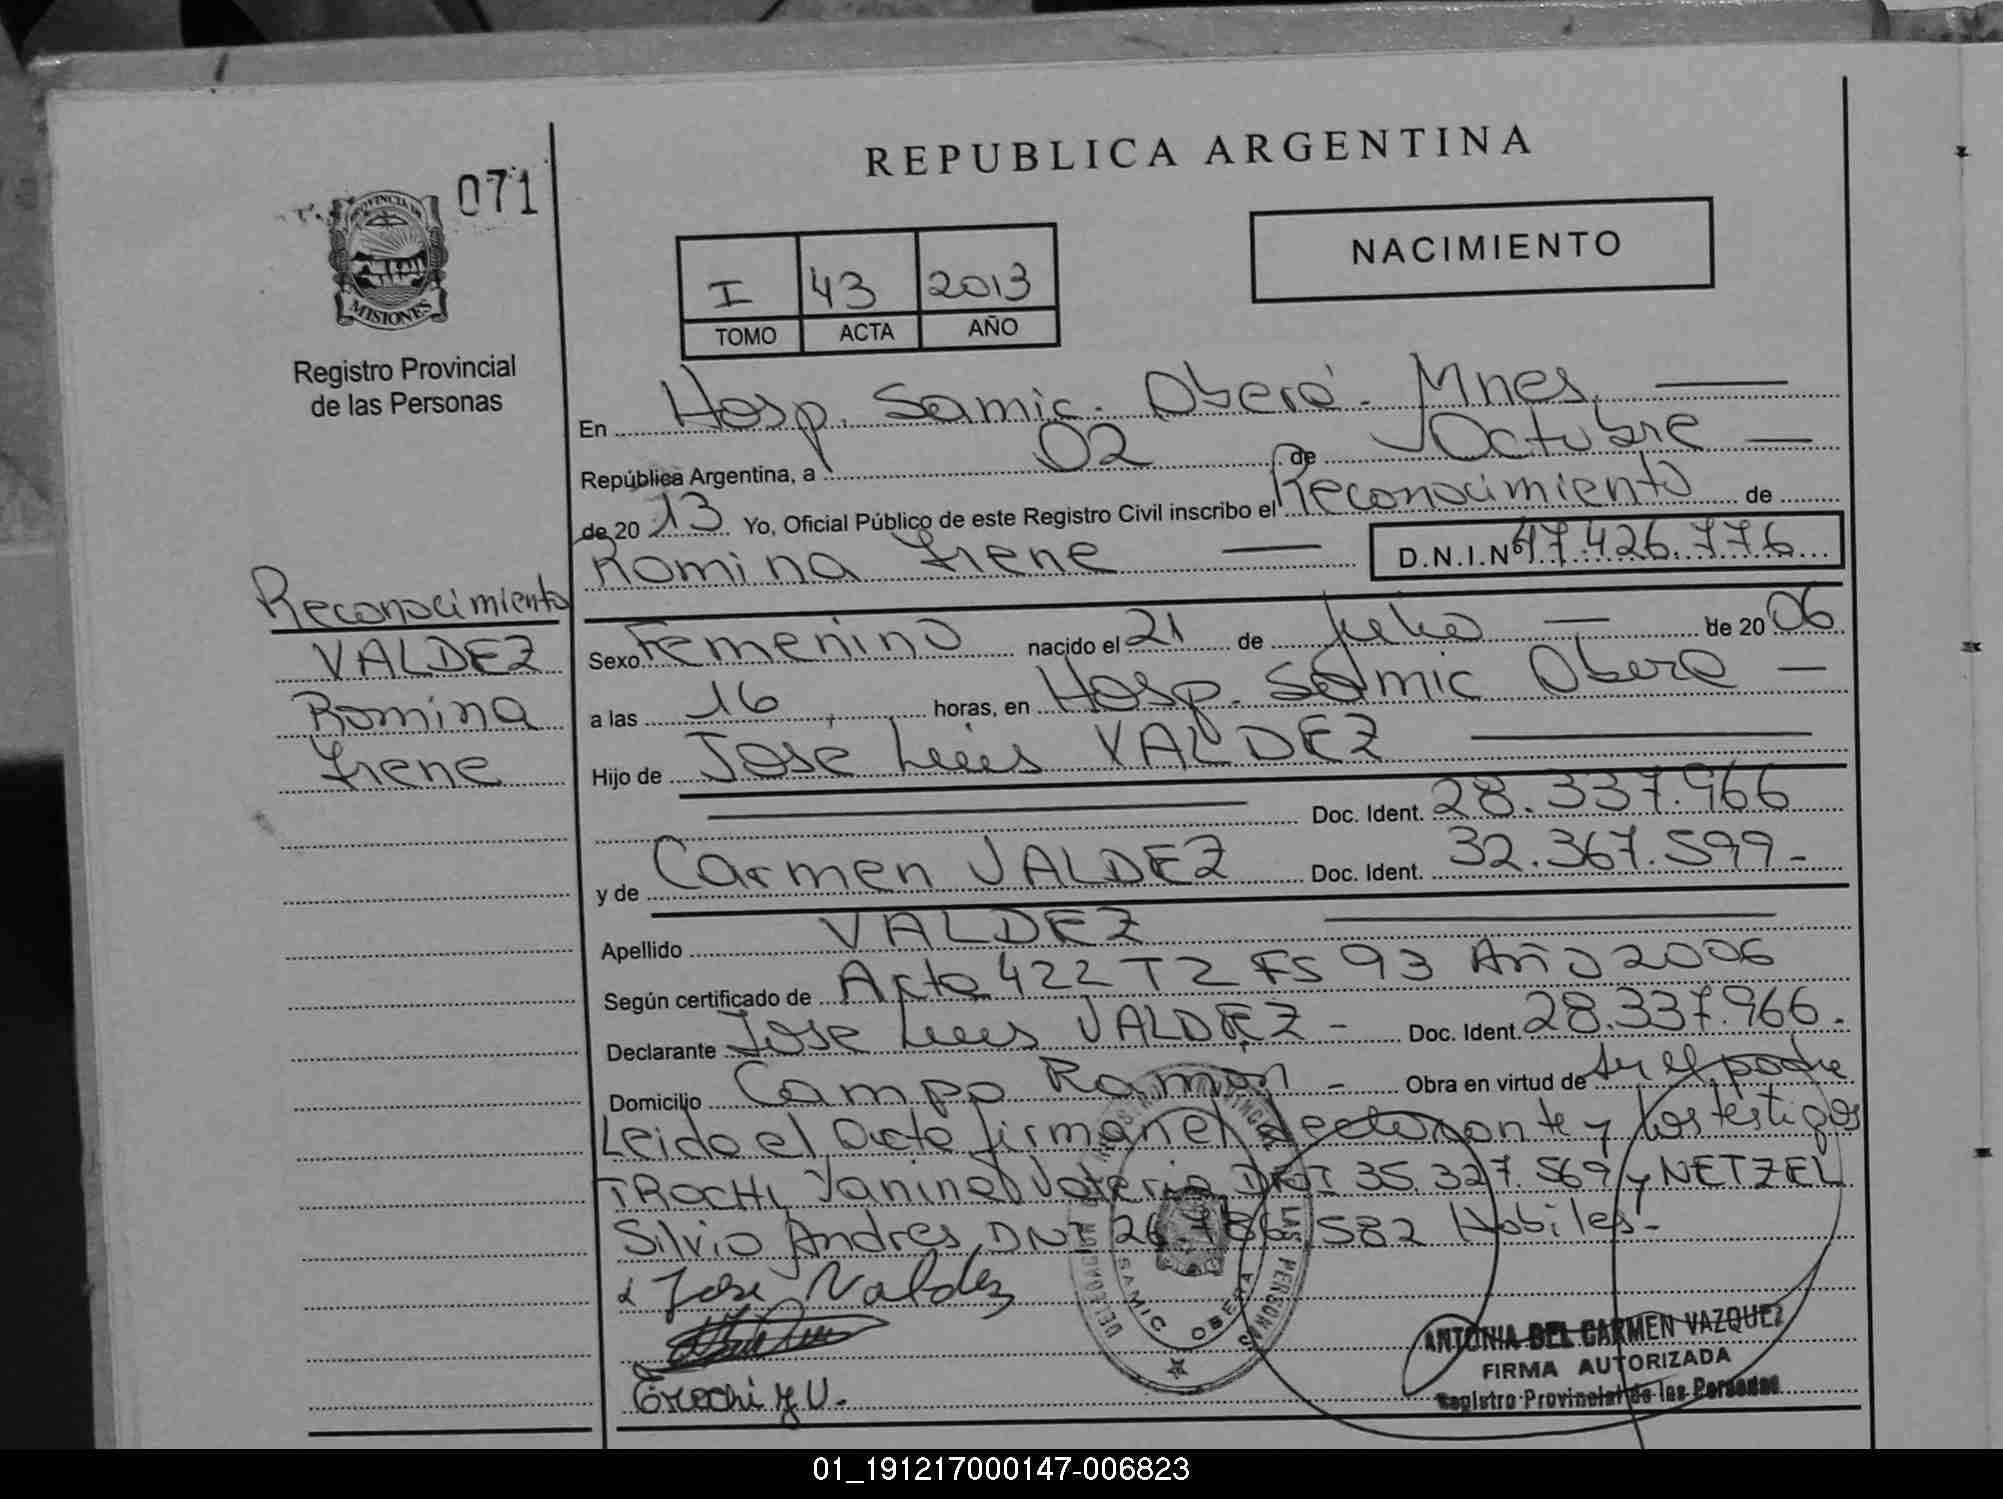 REPUBLICA ARGENTINA
071
PROVINCIA DE
MISIONES
Registro Provincial
de las Personas
NACIMIENTO
I 43 2013
TOMO ACTA AÑO
En Hosp. Samic. Oberá. Mnes.
República Argentina, a 02 de Octubre
de 20 13 Yo, Oficial Público de este Registro Civil inscribo el Reconocimiento de
Romina Irene D.N.I.Nº 47.426.776
Reconocimiento
VALDEZ
Romina
Irene
Sexo Femenino nacido el 21 de Julio de 20 06
a las 16 horas, en Hosp. Samic Obera
Hijo de José Luis VALDEZ
Doc. Ident. 28.337.966
y de Carmen VALDEZ Doc. Ident. 32.367.599
Apellido VALDEZ
Según certificado de Acta 422 T2 FS 93 Año 2006
Declarante Jose Luis VALDEZ - Doc. Ident. 28.337.966.
Domicilio Campo Ramon - Obra en virtud de ser el padre
Leido el acta firman el declarante y los testigos
TROCHI, Yanina Valeria DNI 35.327.569 y NETZEL
Silvio Andres DNI 26.786.582 Habiles.-
Jose Valdez
Y V.
SAMIC OBERA
LAS PERSONAS
ANTONIA DEL CARMEN VAZQUEZ
FIRMA AUTORIZADA
Registro Provincial de las Personas
01_191217000147-006823